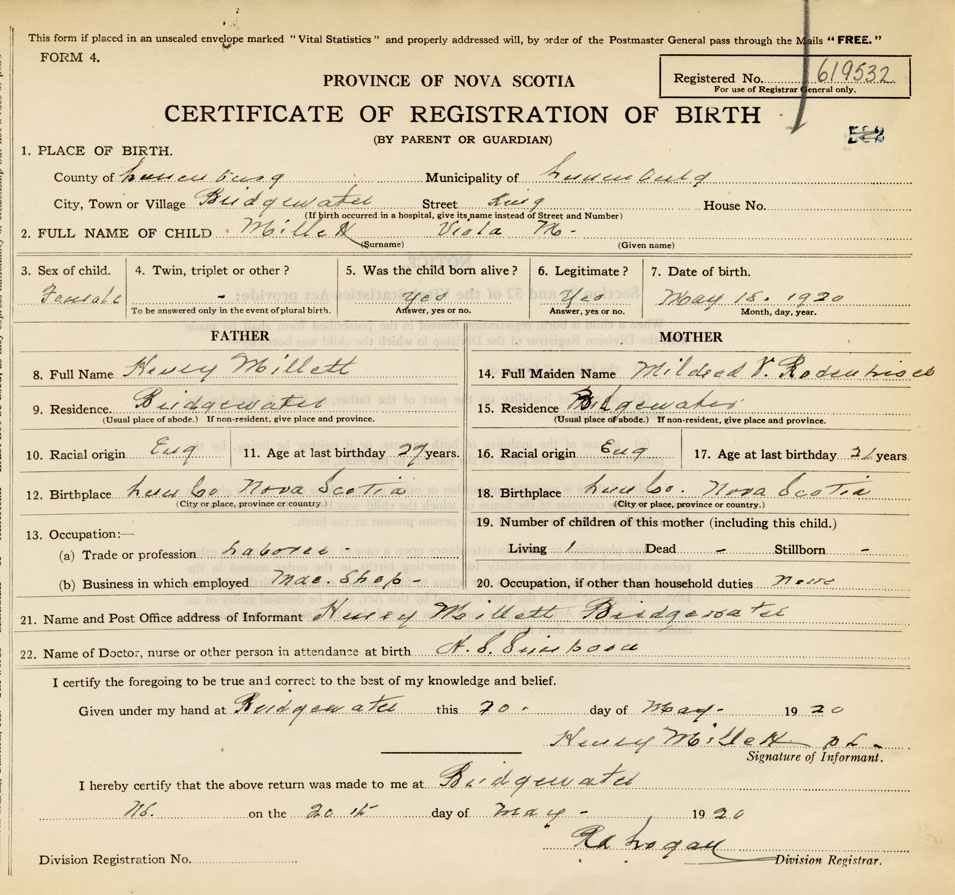 This form if placed in an unsealed envelope marked "Vital Statistics" and properly addressed will, by order of the Postmaster General pass through the Mails "FREE."
FORM 4.
Registered No. 619532
For use of Registrar General only.
PROVINCE OF NOVA SCOTIA
CERTIFICATE OF REGISTRATION OF BIRTH
(BY PARENT OR GUARDIAN)
1. PLACE OF BIRTH.
County of Lunenburg Municipality of Lunenburg
City, Town or Village Bridgewater Street King House No.
(If birth occurred in a hospital, give its name instead of Street and Number)
2. FULL NAME OF CHILD Millett Viola M-
(Surname) (Given name)
3. Sex of child. 4. Twin, triplet or other? 5. Was the child born alive? 6. Legitimate? 7. Date of birth.
Female - Yes Yes May 18. 1920
To be answered only in the event of plural birth. Answer, yes or no. Answer, yes or no. Month, day, year.
FATHER MOTHER
8. Full Name Henry Millett 14. Full Maiden Name Mildred V. Rodenhiser
9. Residence. Bridgewater 15. Residence Bridgewater
(Usual place of abode.) If non-resident, give place and province. (Usual place of abode.) If non-resident, give place and province.
10. Racial origin Eng 11. Age at last birthday 27 years. 16. Racial origin Eng 17. Age at last birthday 21 years
12. Birthplace Lun Co Nova Scotia 18. Birthplace Lun Co. Nova Scotia
(City or place, province or country.) (City or place, province or country.)
19. Number of children of this mother (including this child.)
13. Occupation:—
(a) Trade or profession Laborer - Living 1 Dead - Stillborn -
(b) Business in which employed Mac. Shop - 20. Occupation, if other than household duties None
21. Name and Post Office address of Informant Henry Millett Bridgewater
22. Name of Doctor, nurse or other person in attendance at birth
I certify the foregoing to be true and correct to the best of my knowledge and belief.
Given under my hand at Bridgewater this 20 - day of May - 1920
Henry Millett
Signature of Informant.
I hereby certify that the above return was made to me at Bridgewater
NS. on the 20 th day of May - 1920
Logan
Division Registration No. Division Registrar.